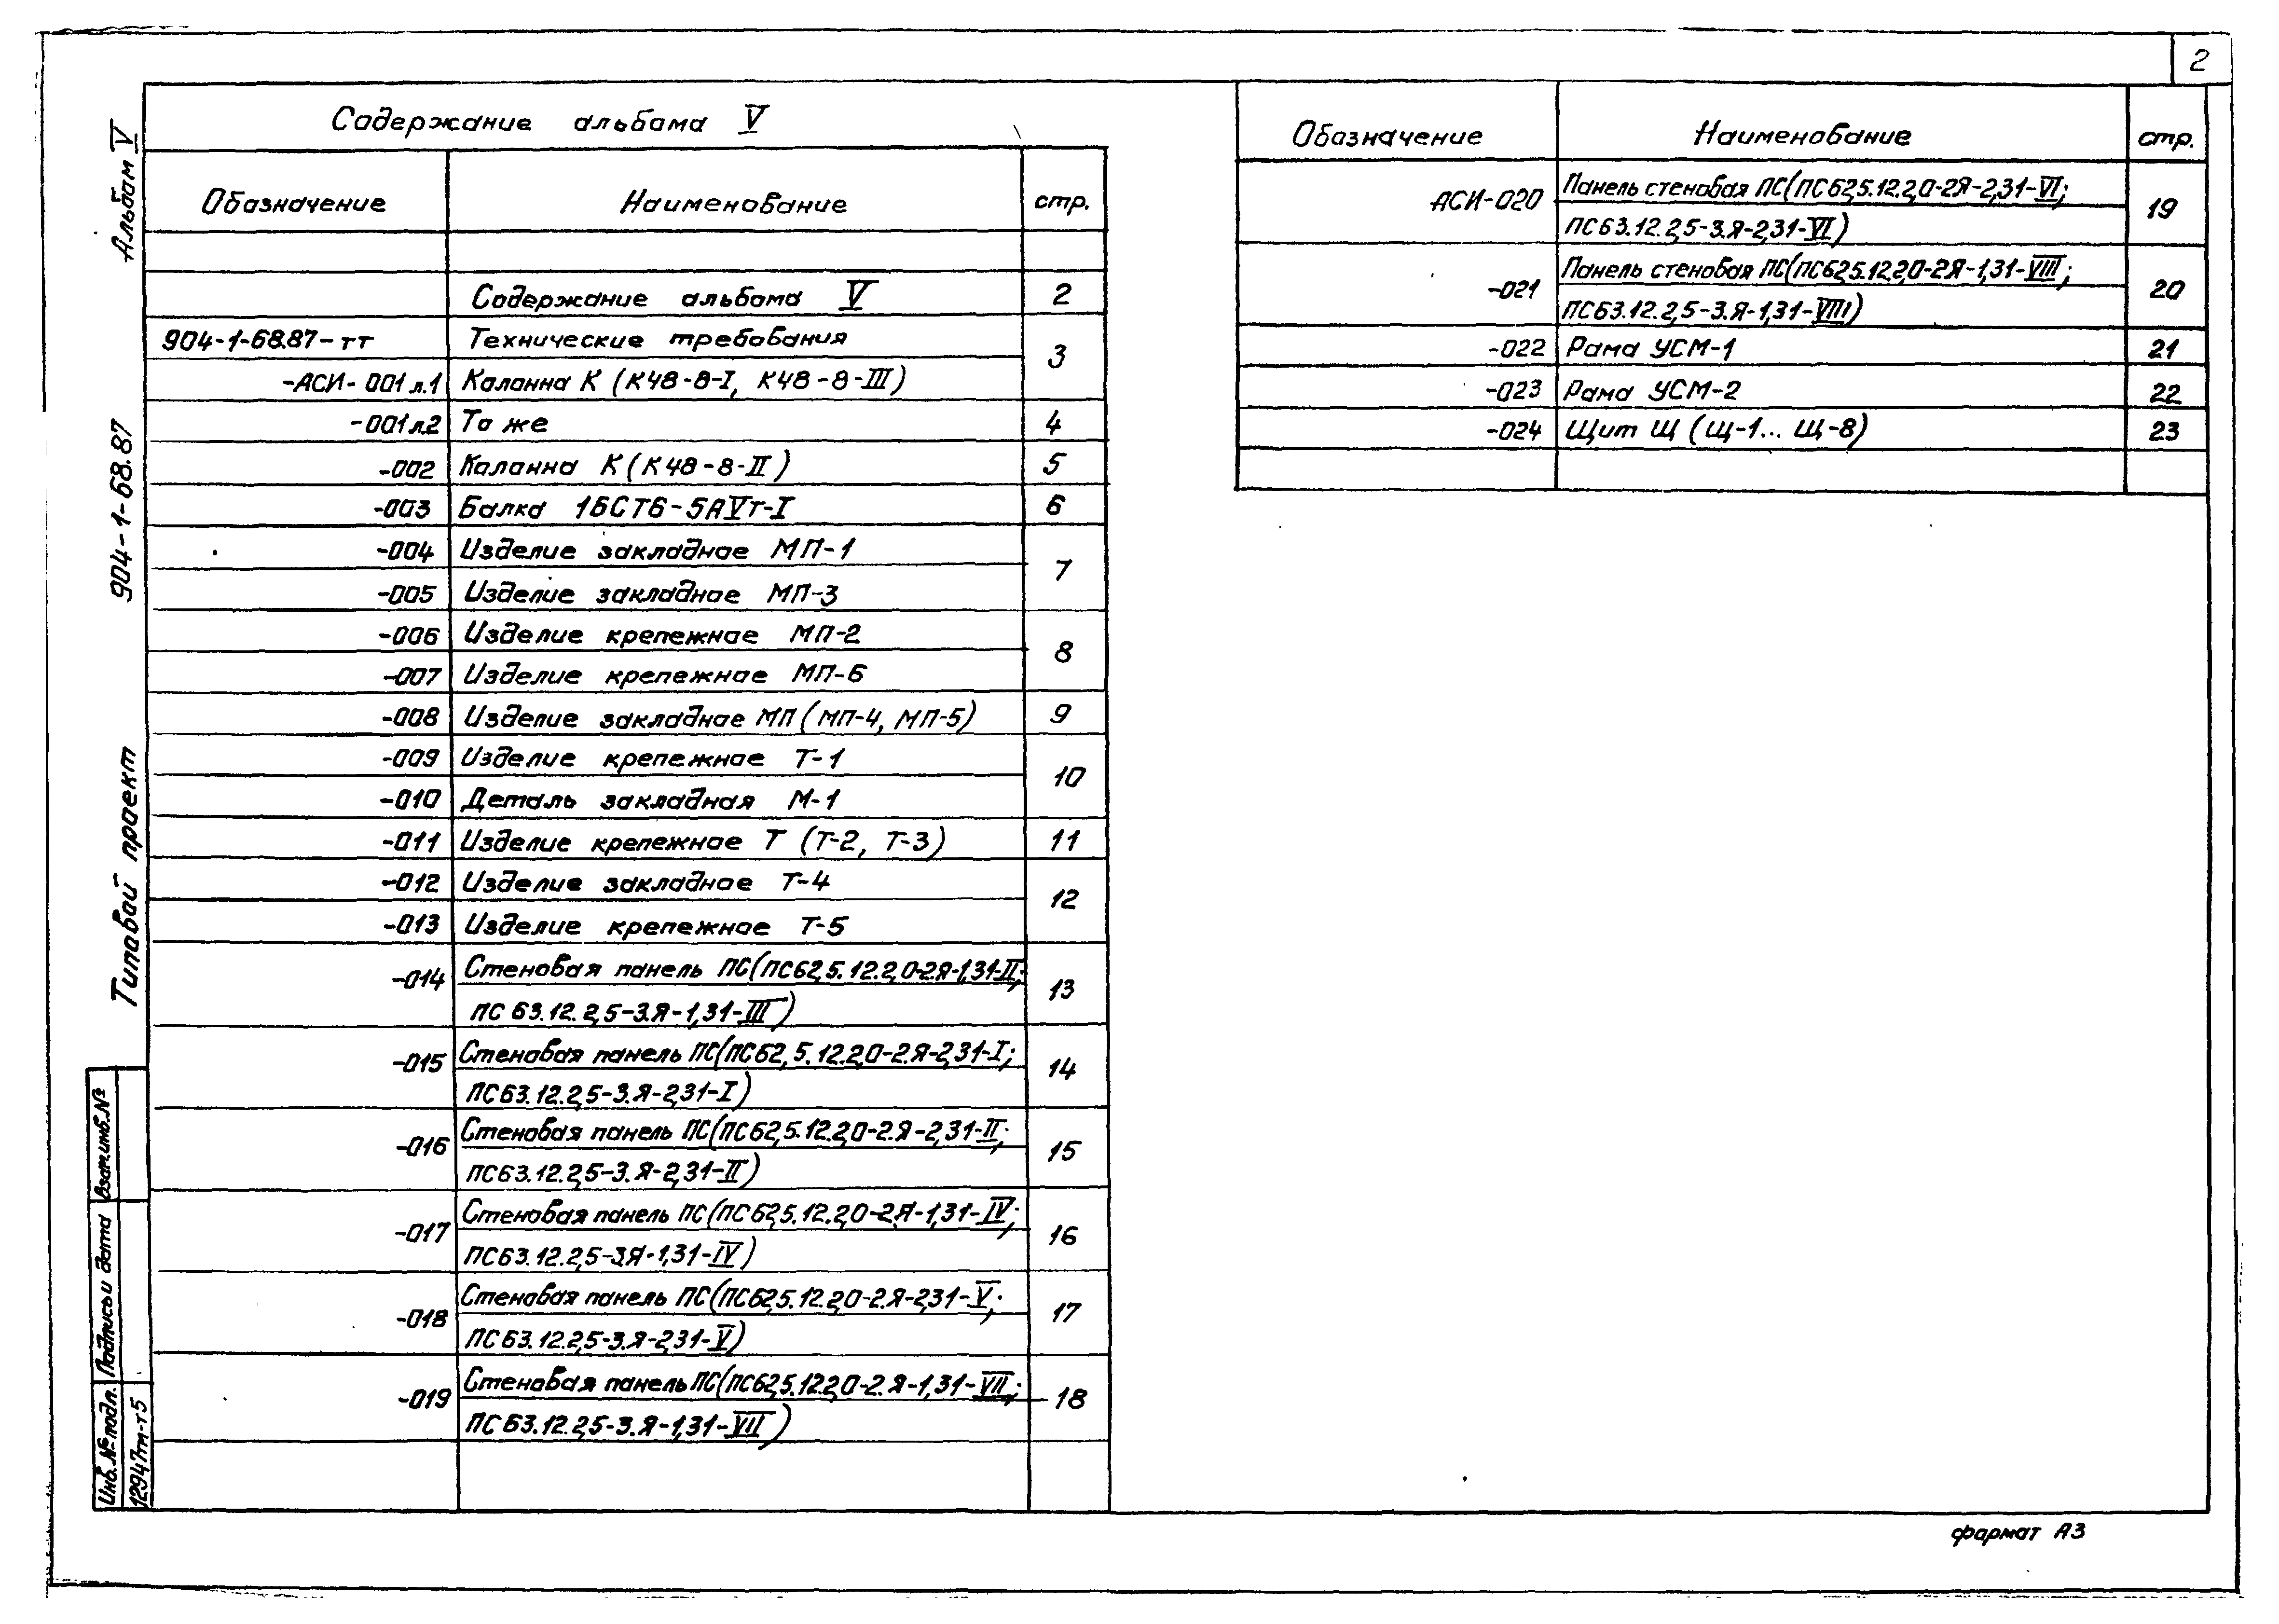 2
Содержание альбома V
Обозначение Наименование стр.
Содержание альбома V 2
904-1-68.87-тт Технические требования 3
-АСИ-001 л.1 Колонна К (К48-8-I, К48-8-III)
-001 л.2 То же 4
-002 Колонна К (К48-8-II) 5
-003 Балка 1БСТ6-5АVт-I 6
-004 Изделие закладное МП-1 7
-005 Изделие закладное МП-3
-006 Изделие крепежное МП-2 8
-007 Изделие крепежное МП-6
-008 Изделие закладное МП (МП-4, МП-5) 9
-009 Изделие крепежное Т-1 10
-010 Деталь закладная М-1
-011 Изделие крепежное Т (Т-2, Т-3) 11
-012 Изделие закладное Т-4 12
-013 Изделие крепежное Т-5
-014 Стеновая панель ПС(ПС62,5.12.2,0-2.Я-1,31-II; 13
ПС 63.12.2,5-3.Я-1,31-III)
-015 Стеновая панель ПС(ПС62,5.12.2,0-2.Я-2,31-I; 14
ПС63.12.2,5-3.Я-2,31-I)
-016 Стеновая панель ПС(ПС62,5.12.2,0-2.Я-2,31-II; 15
ПС63.12.2,5-3.Я-2,31-II)
-017 Стеновая панель ПС(ПС62,5.12.2,0-2.Я-1,31-IV; 16
ПС63.12.2,5-3.Я-1,31-IV)
-018 Стеновая панель ПС(ПС62,5.12.2,0-2.Я-2,31-V; 17
ПС63.12.2,5-3.Я-2,31-V)
-019 Стеновая панель ПС(ПС62,5.12.2,0-2.Я-1,31-VII; 18
ПС63.12.2,5-3.Я-1,31-VII)
Обозначение Наименование стр.
АСИ-020 Панель стеновая ПС(ПС62,5.12.2,0-2Я-2,31-VI; 19
ПС63.12.2,5-3.Я-2,31-VI)
-021 Панель стеновая ПС(ПС62,5.12.2,0-2Я-1,31-VIII; 20
ПС63.12.2,5-3.Я-1,31-VIII)
-022 Рама УСМ-1 21
-023 Рама УСМ-2 22
-024 Щит Щ (Щ-1... Щ-8) 23
Типовой проект 904-1-68.87 Альбом V
Инв.№ подл. Подпись и дата Взам.инв.№
12947тм-т5
формат А3